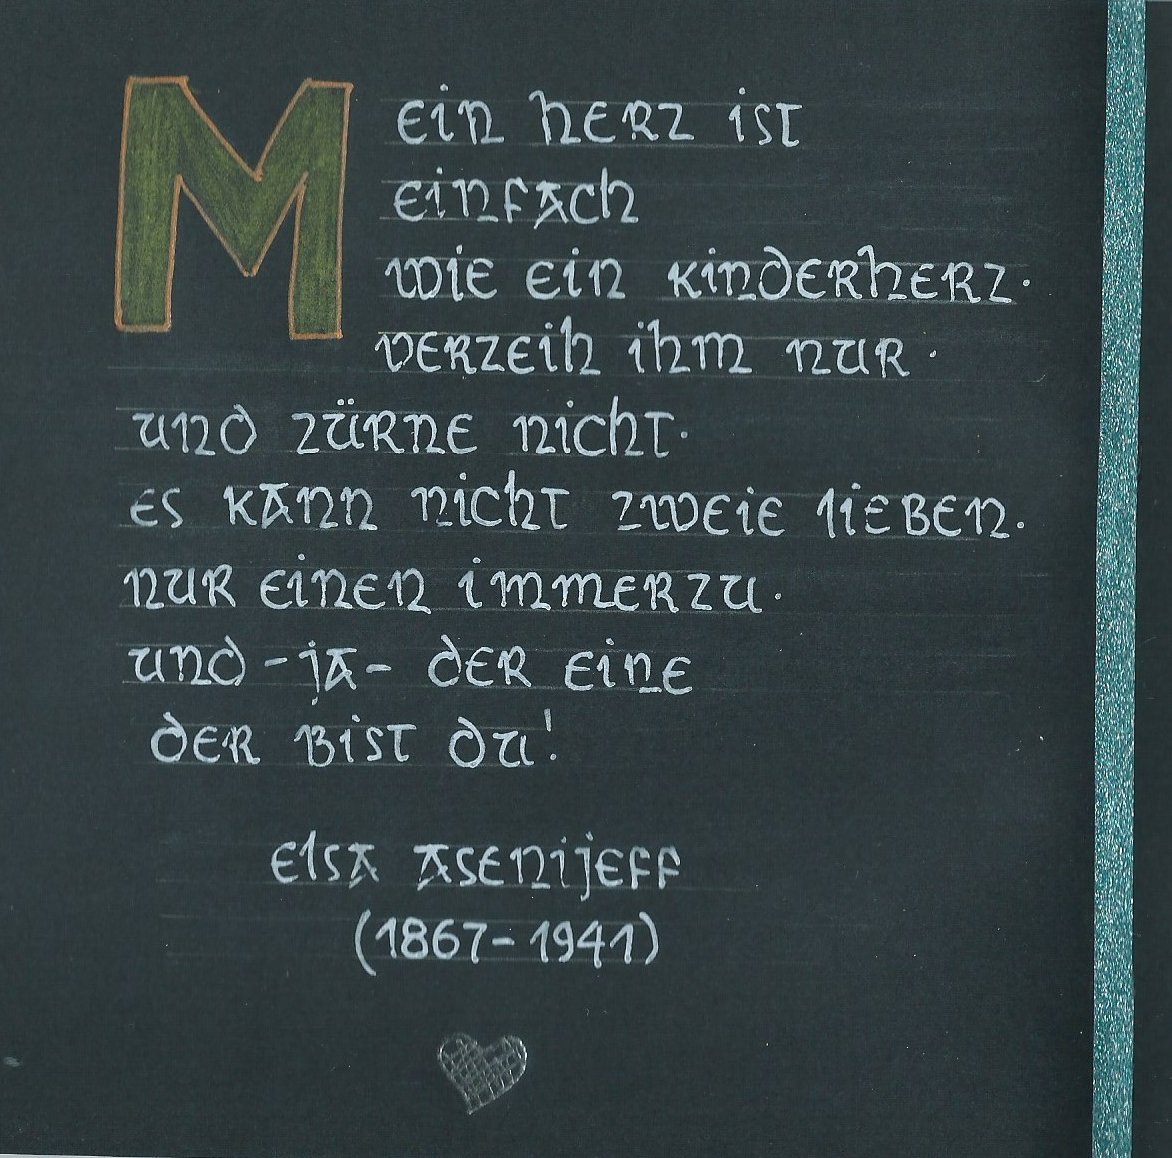 Mein Herz ist
einfach
wie ein Kinderherz.
Verzeih ihm nur.
und zürne nicht.
es kann nicht zweie lieben.
nur einen immerzu.
und - ja - der eine
der bist du!
Elsa Asenijeff
(1867-1941)